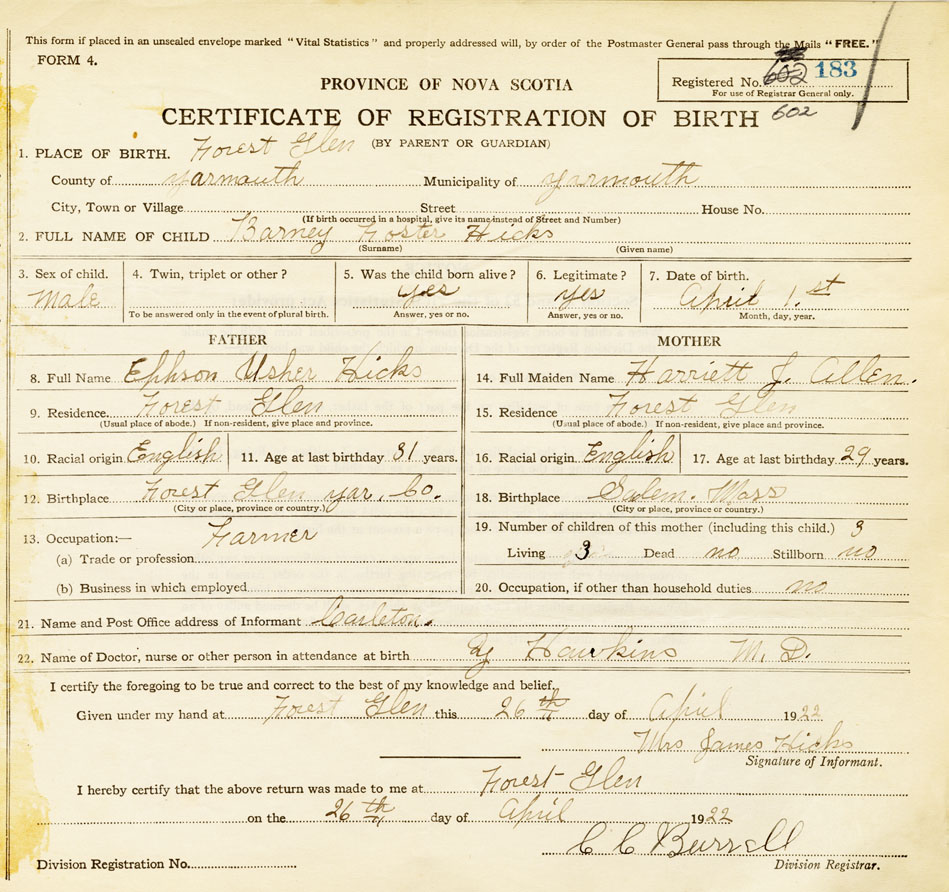 This form if placed in an unsealed envelope marked "Vital Statistics" and properly addressed will, by order of the Postmaster General pass through the Mails "FREE."
FORM 4.
PROVINCE OF NOVA SCOTIA
Registered No. 602 183
For use of Registrar General only.
CERTIFICATE OF REGISTRATION OF BIRTH 602
1. PLACE OF BIRTH. Forest Glen (BY PARENT OR GUARDIAN)
County of Yarmouth Municipality of Yarmouth
City, Town or Village Street House No.
(If birth occurred in a hospital, give its name instead of Street and Number)
2. FULL NAME OF CHILD Barney Foster Hicks
(Surname) (Given name)
3. Sex of child. 4. Twin, triplet or other? 5. Was the child born alive? 6. Legitimate? 7. Date of birth.
Male yes yes April 1.st
To be answered only in the event of plural birth. Answer, yes or no. Answer, yes or no. Month, day, year.
FATHER MOTHER
8. Full Name Ephson Usher Hicks 14. Full Maiden Name Harriett J. Allen.
9. Residence. Forest Glen 15. Residence Forest Glen
(Usual place of abode.) If non-resident, give place and province. (Usual place of abode.) If non-resident, give place and province.
10. Racial origin English 11. Age at last birthday 31 years. 16. Racial origin English 17. Age at last birthday 29 years.
12. Birthplace Forest Glen Yar. Co. 18. Birthplace Salem. Mass
(City or place, province or country.) (City or place, province or country.)
13. Occupation:— Farmer 19. Number of children of this mother (including this child.) 3
(a) Trade or profession Living 3 Dead no Stillborn no
(b) Business in which employed 20. Occupation, if other than household duties no
21. Name and Post Office address of Informant Carleton.
22. Name of Doctor, nurse or other person in attendance at birth Hawkins M. D.
I certify the foregoing to be true and correct to the best of my knowledge and belief.
Given under my hand at Forest Glen this 26th day of April 1922
Mrs James Hicks
Signature of Informant.
I hereby certify that the above return was made to me at Forest Glen
on the 26th day of April 1922
C C Burrell
Division Registration No. Division Registrar.